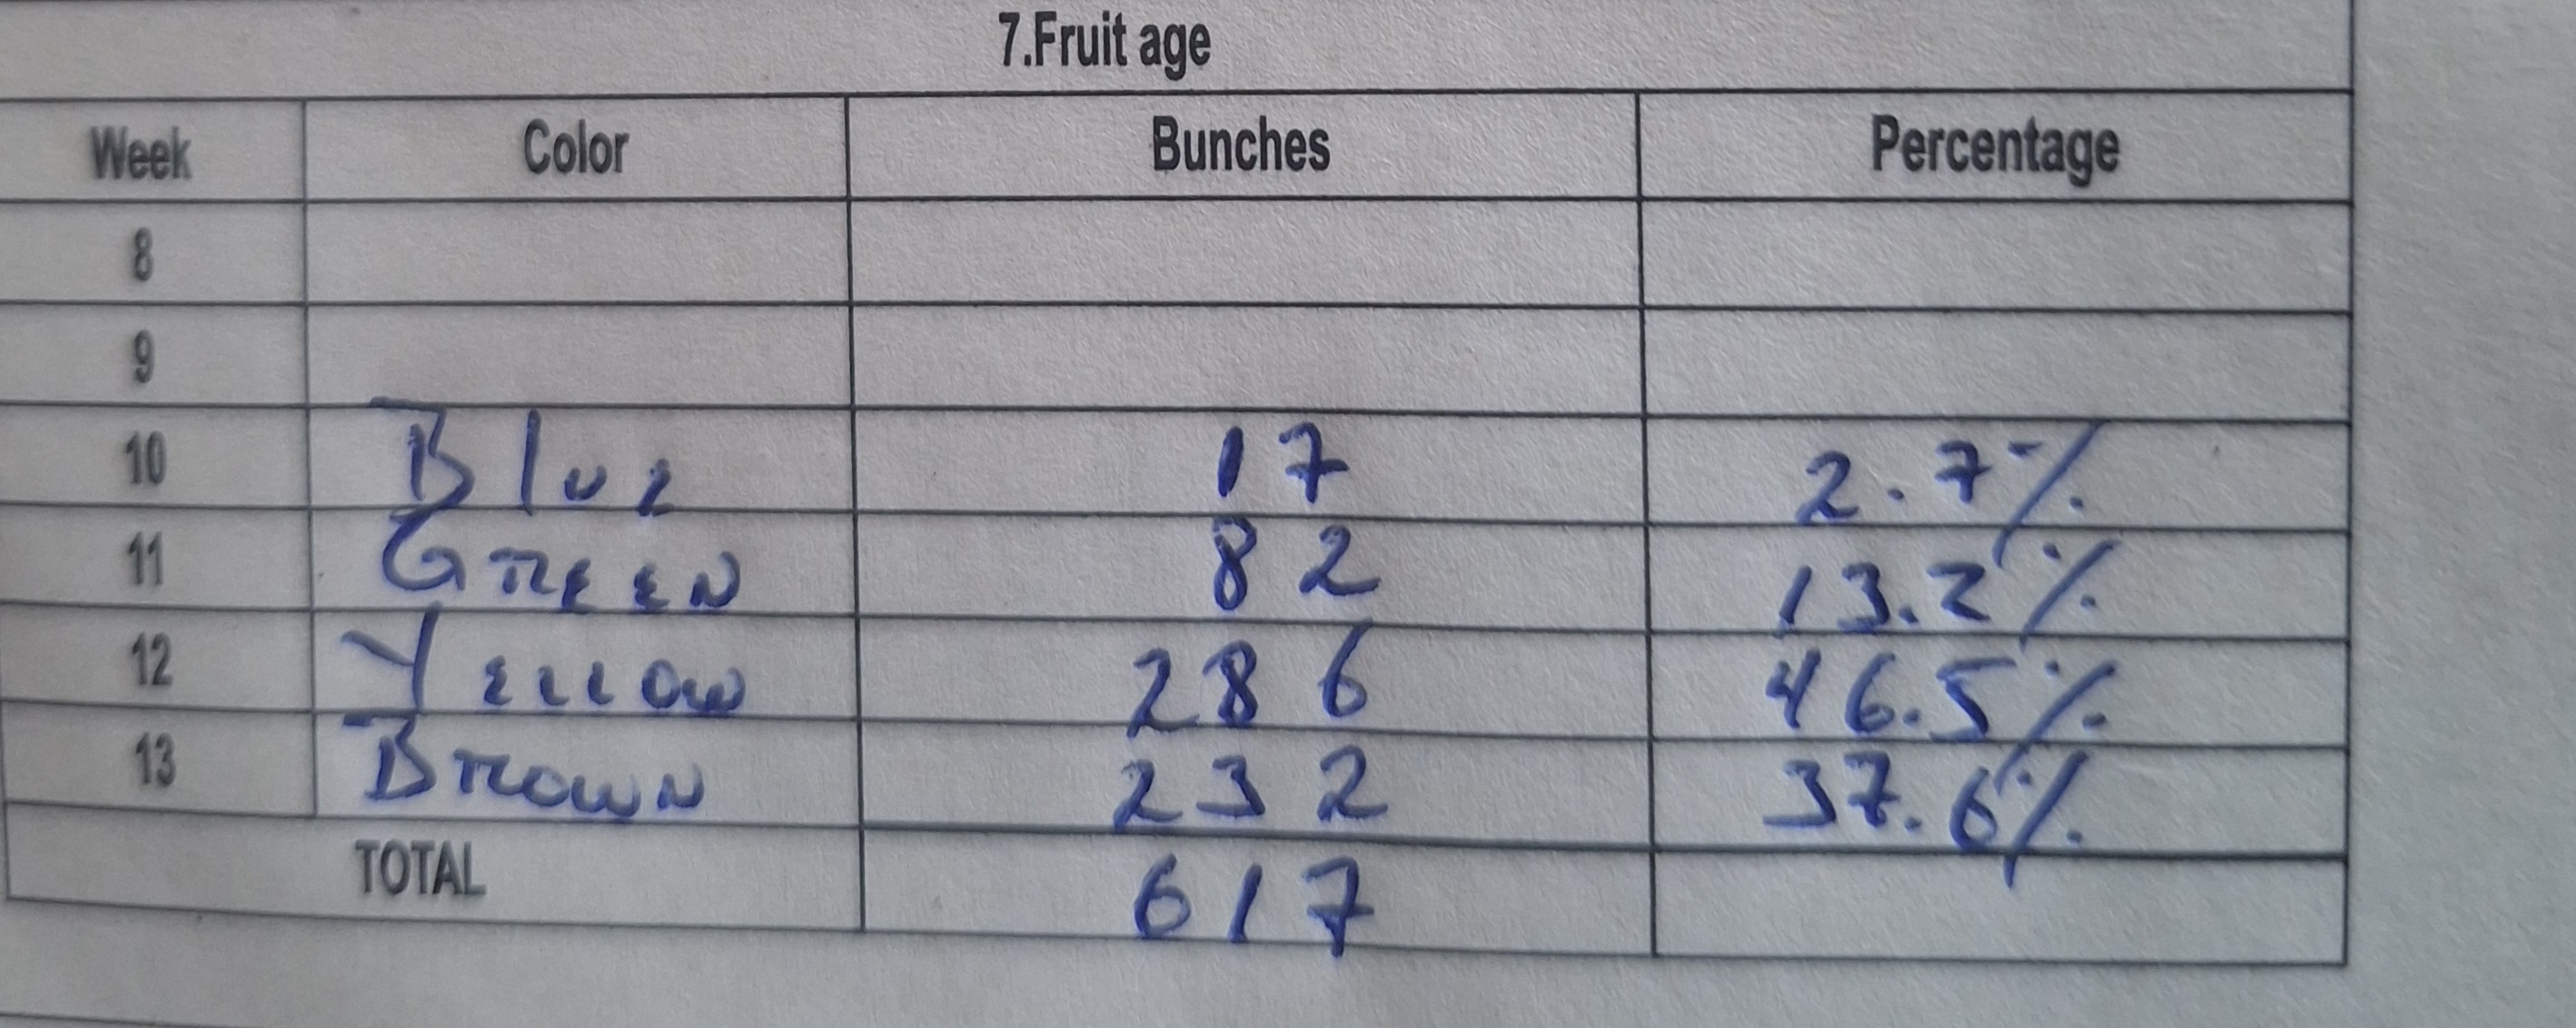 7.Fruit age
Week Color Bunches Percentage
8
9
10 Blue 17 2.7%
11 GREEN 82 13.2%
12 YELLOW 286 46.5%
13 BROWN 232 37.6%
TOTAL 617